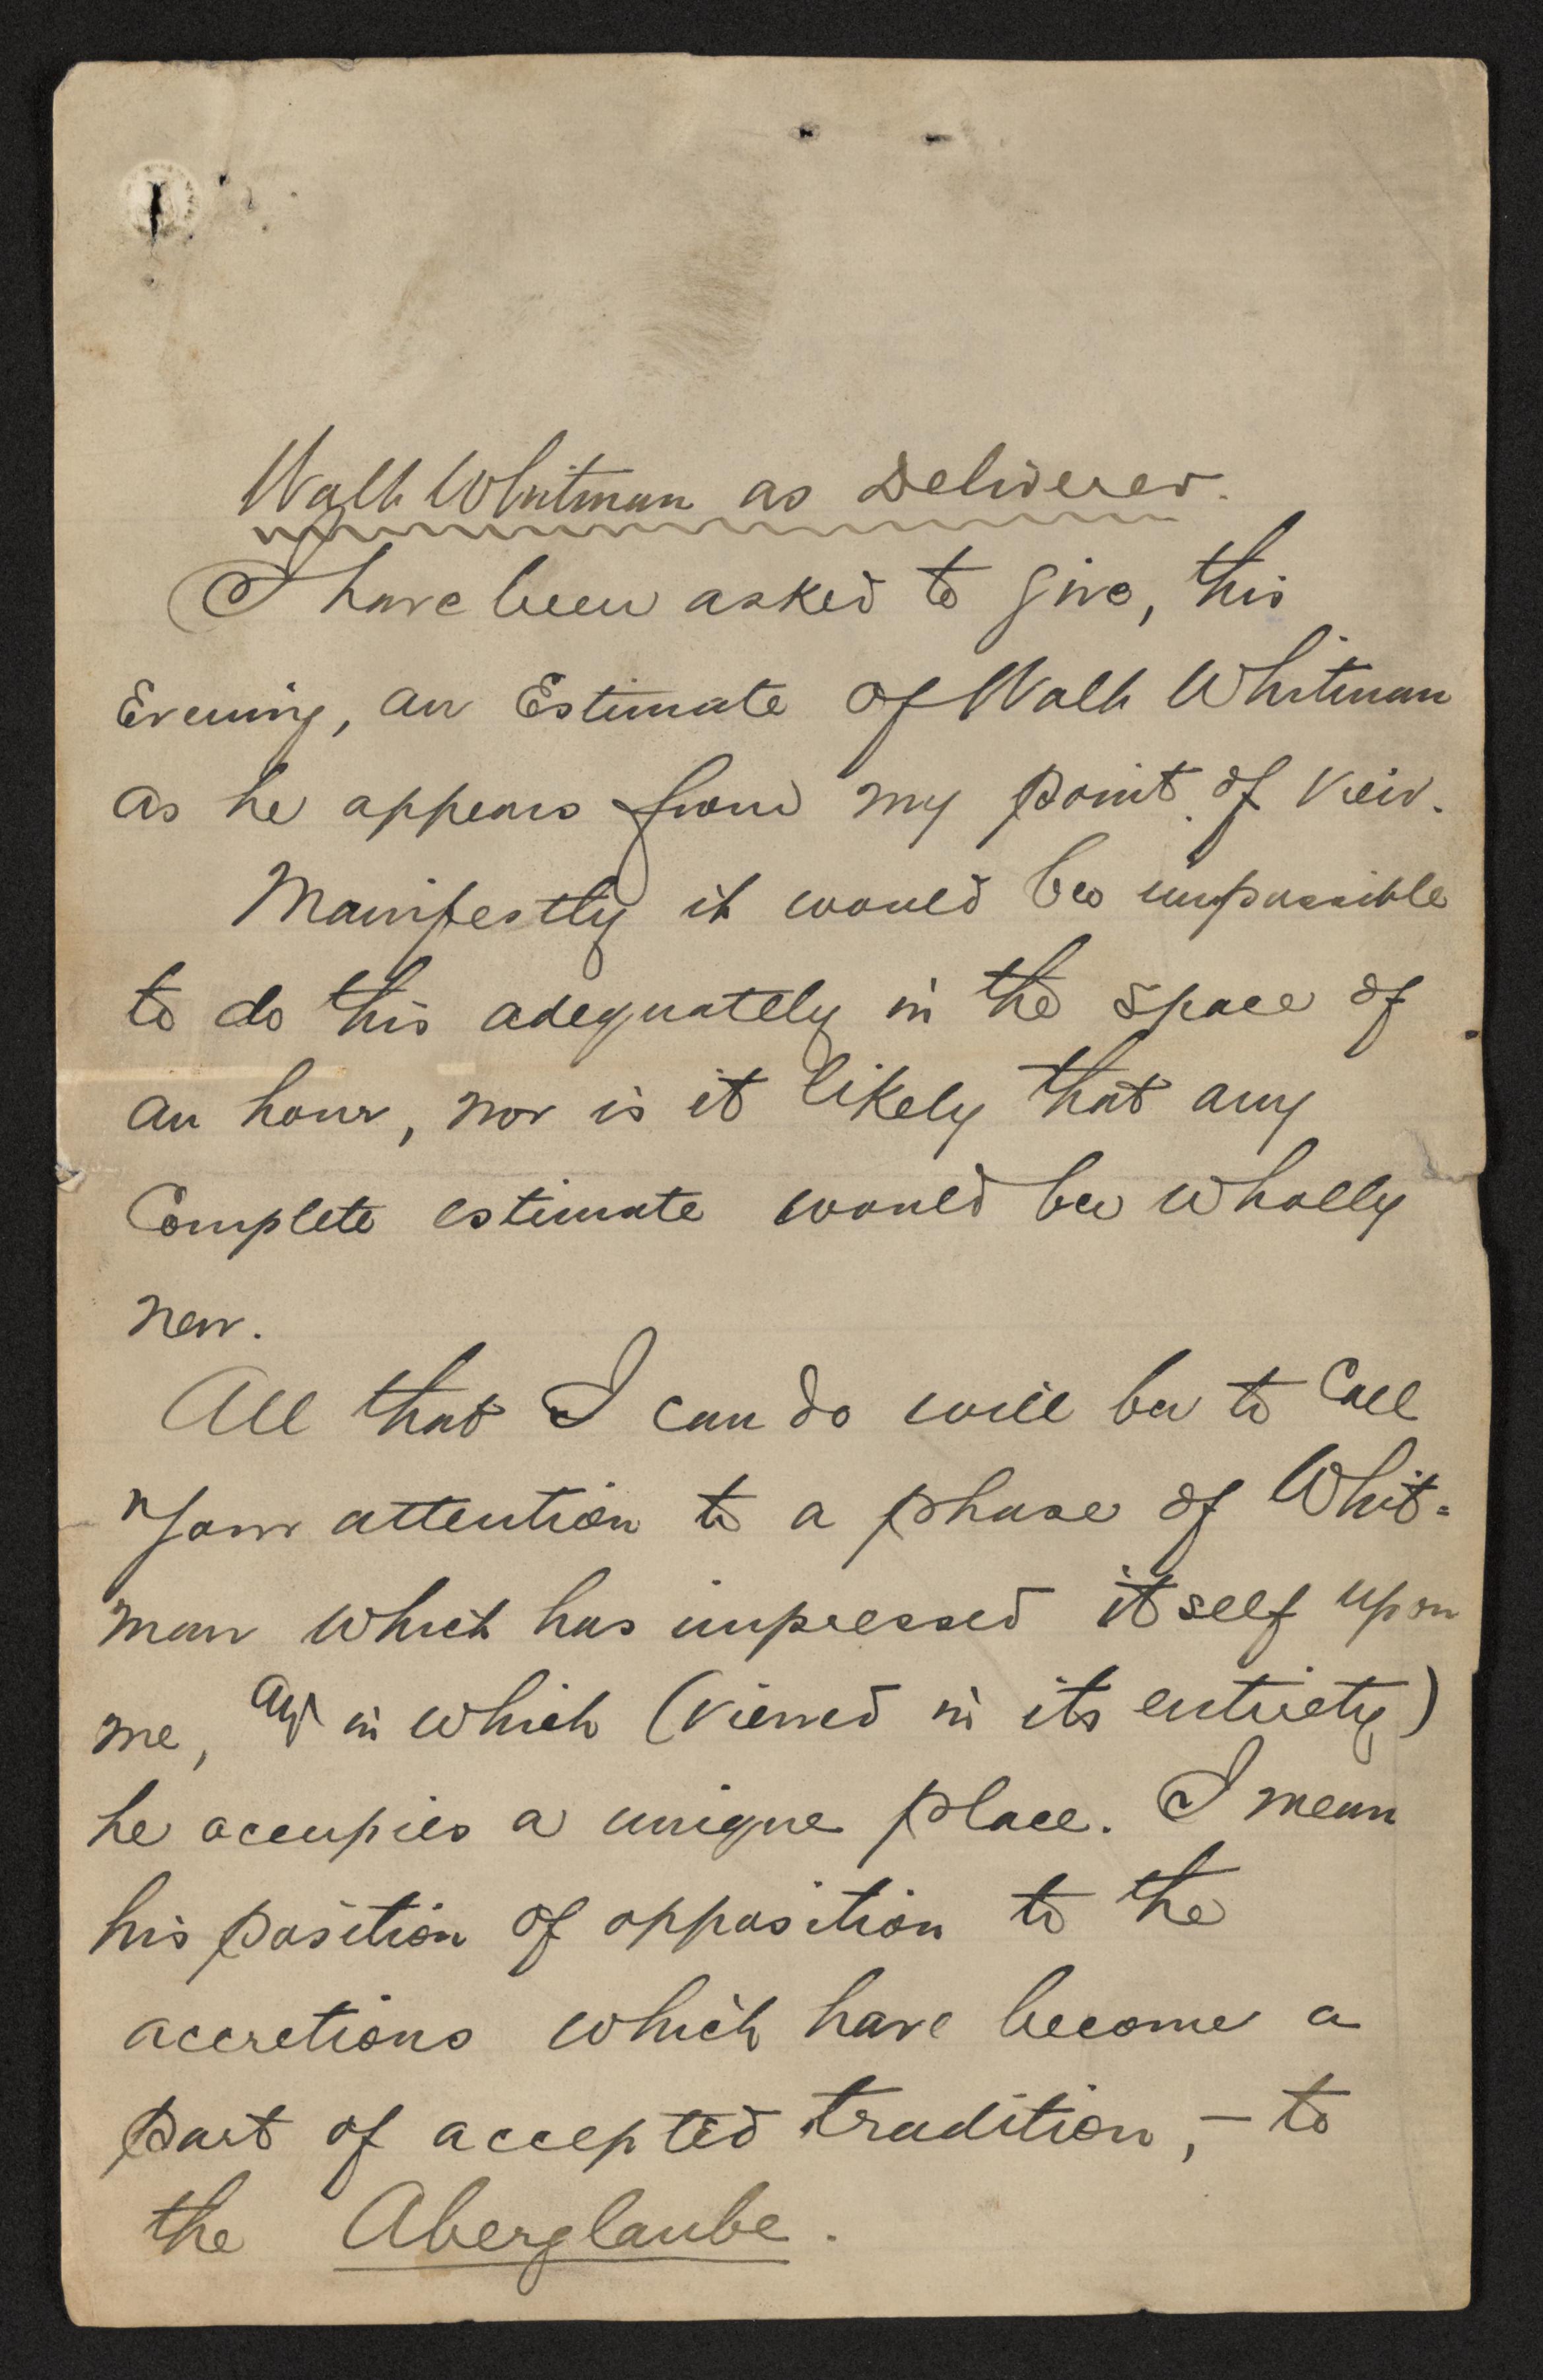 Walt Whitman as Deliverer.
I have been asked to give, this
Evening, an Estimate of Walt Whitman
as he appears from my point of view.
Manifestly it would be impossible
to do this adequately in the space of
an hour, nor is it likely that any
Complete estimate would be wholly
new.
All that I can do will be to Call
your attention to a phase of Whit-
man which has impressed itself upon
me, and in which (viewed in its entirety)
he occupies a unique place. I mean
his position of opposition to the
accretions which have become a
part of accepted tradition, — to
the Aberglaube.